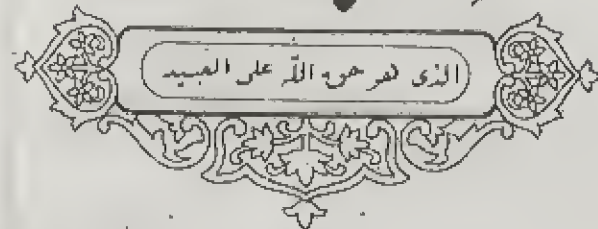 الذى هو حق الله على العبيد